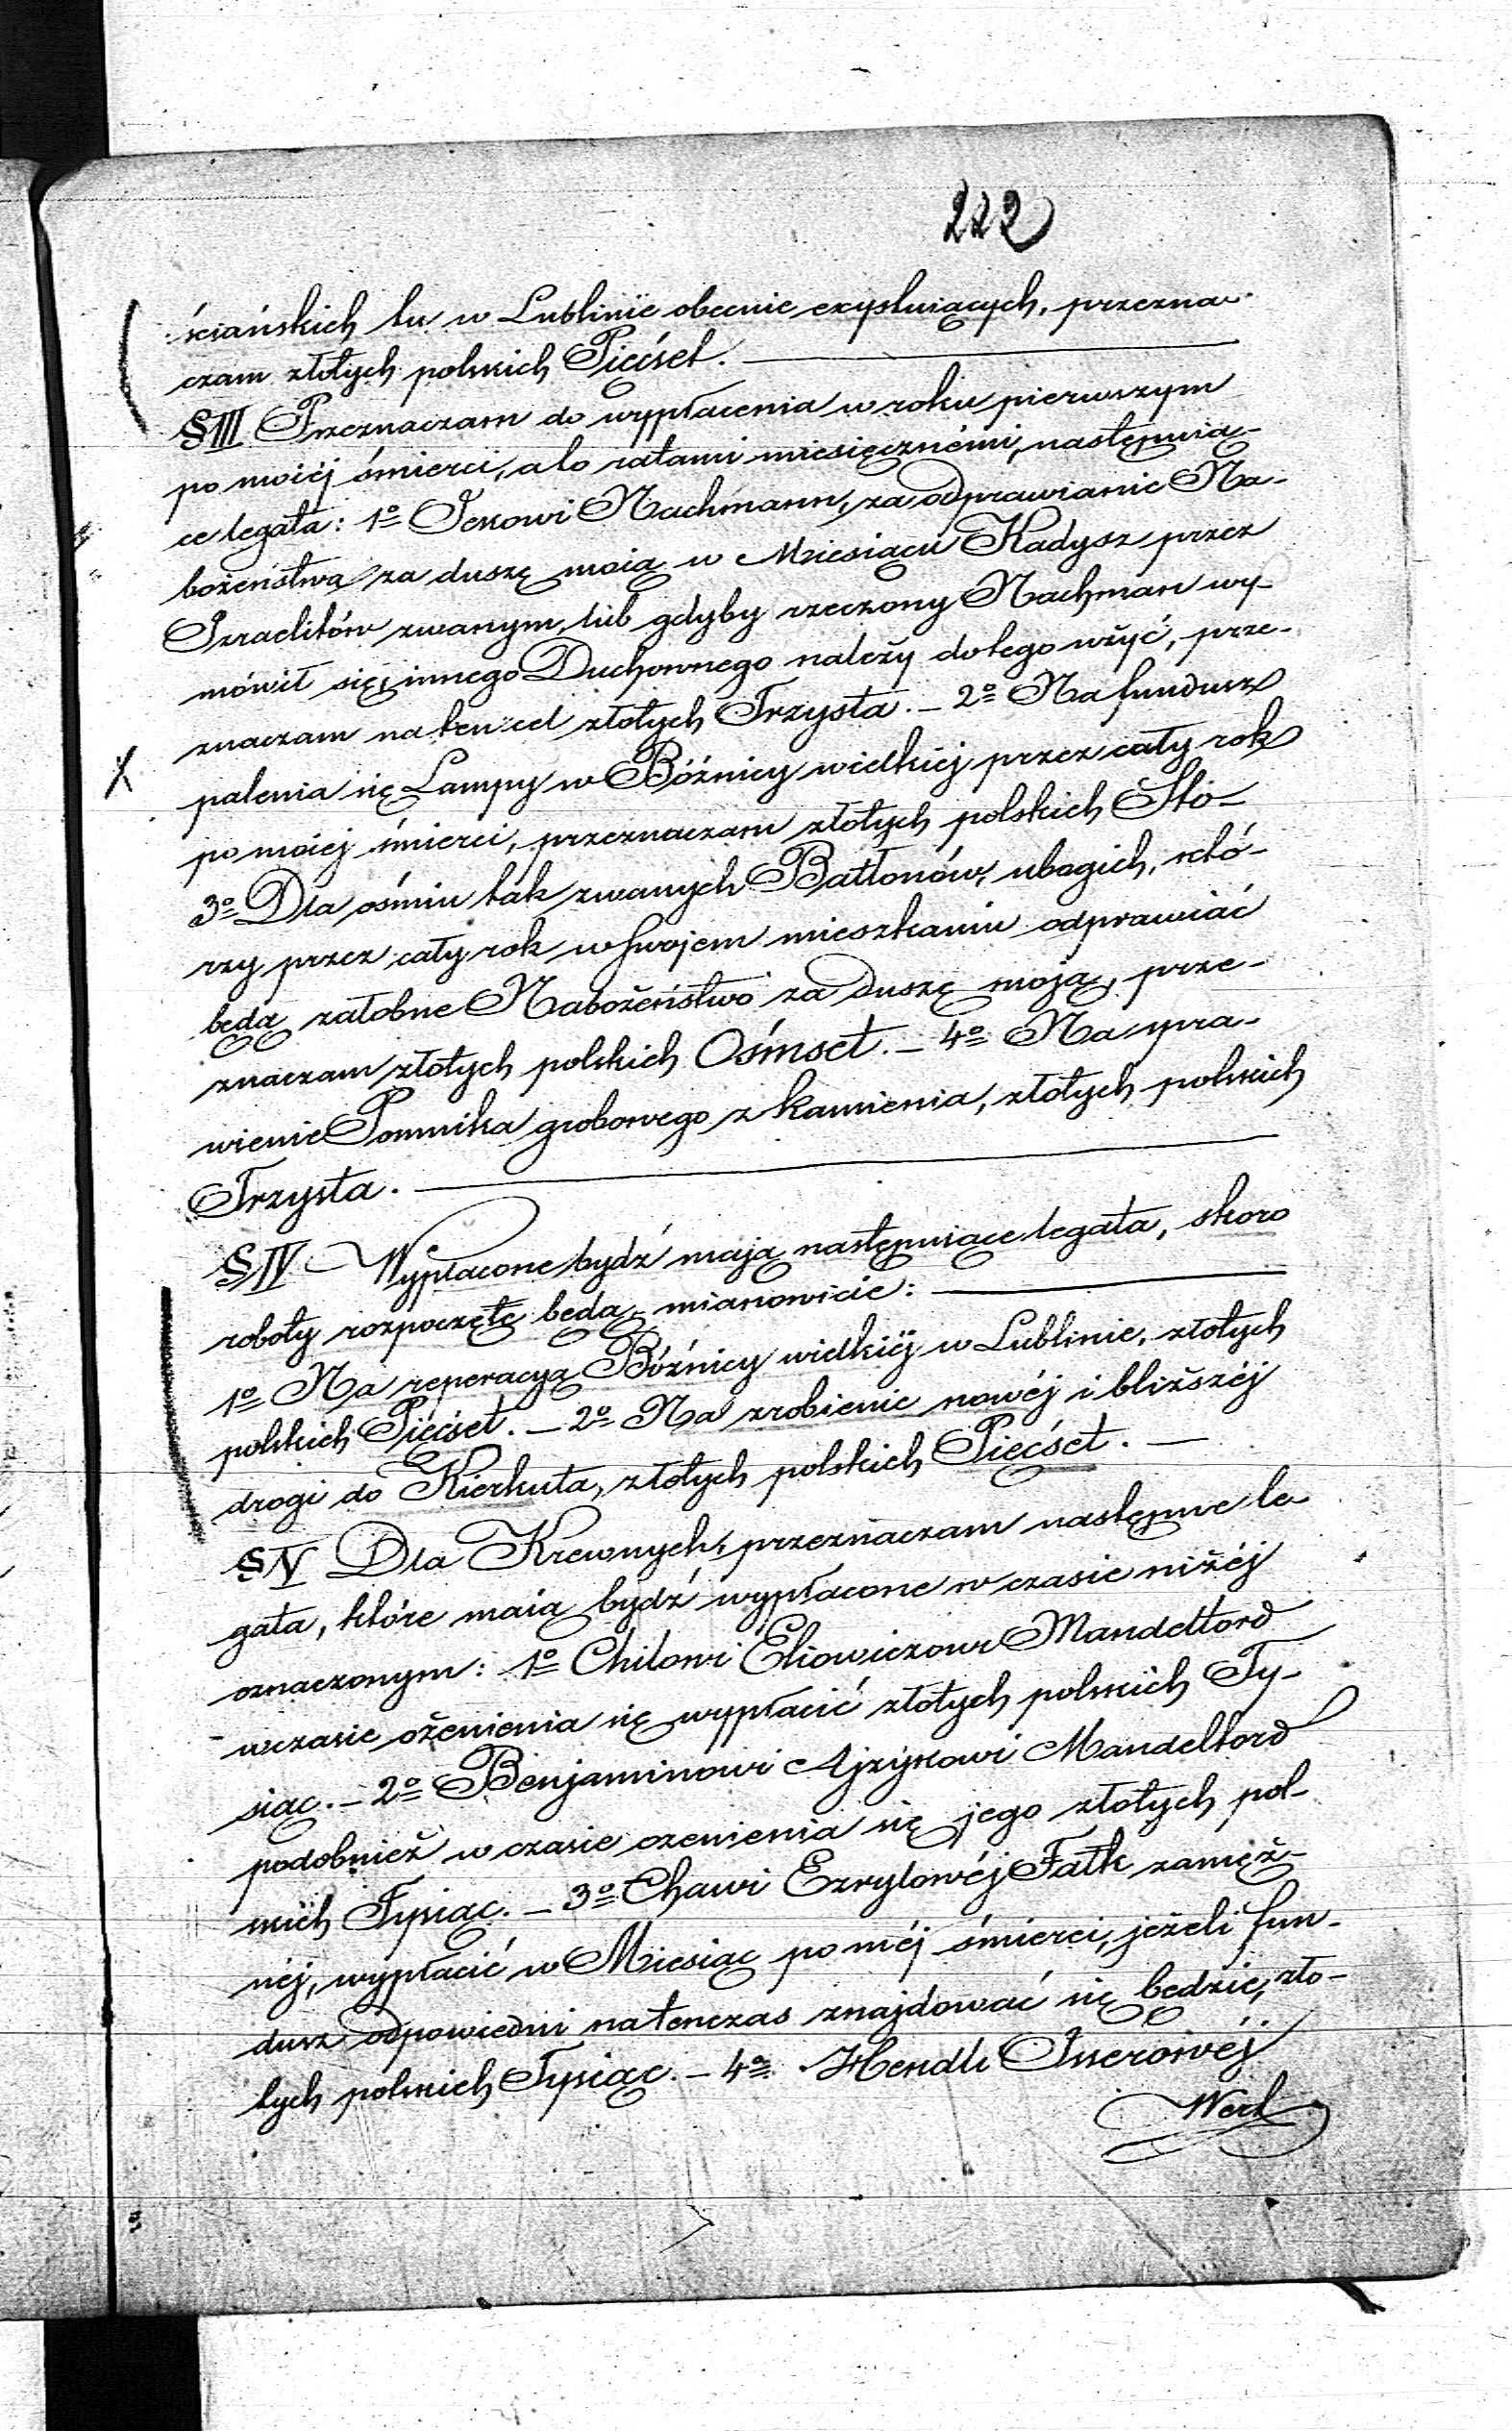 222
ściańskich tu w Lublinie obecnie exystuiących, przezna-
czam złotych polskich Pięćset.
§ III Przeznaczam do wypłacenia w roku pierwszym
po moiéj śmierci, a to ratami miesięcznémi, następuią-
ce legata: 1o Ickowi Nachmann, za odprawianie Na-
bożeństwa za duszę moią w Miesiącu Kadysz przez
Izraelitów zwanym, lub gdyby rzeczony Nachman wy-
mówił się, innego Duchownego należy do tego użyć, prze-
znaczam na ten cel złotych Trzysta. – 2o Na fundusz
palenia się Lampy w Bóźnicy wielkiéj przez cały rok
po moiej śmierci, przeznaczam złotych polskich Sto –
3o Dla ośmiu tak zwanych Batłonów, ubogich, któ-
rzy przez cały rok w swojem mieszkaniu odprawiać
będą żałobne Nabożeństwo za duszę moją, prze-
znaczam złotych polskich Ośmset. – 4o Na spra-
wienie Pomnika grobowego z kamienia, złotych polskich
Trzysta.
§ IV Wypłacone bydź mają następuiące legata, skoro
roboty rozpoczęte będą, mianowicie:
1o Na reperacyą Bóźnicy wielkiéj w Lublinie, złotych
polskich Pięćset. – 2o Na zrobienie nowéj i bliższéj
drogi do Kierkuta, złotych polskich Pięćset. –
§ V Dla Krewnych, przeznaczam następne le-
gata, które maią bydź wypłacone w czasie niżéj
oznaczonym: 1o Chilowi Eliowiczowi Mandeltord
w czasie ożenienia się wypłacić złotych polskich Ty-
siąc. – 2o Benjaminowi Ajzykowi Mandeltord
podobnież w czasie ozenienia się jego złotych pol-
skich Tysiąc. – 3o Chawi Ezrylowéj Fałk zamęż-
néj, wypłacić w Miesiąc po méj śmierci, jeżeli fun-
dusz odpowiedni natenczas znajdować się będzie, zło-
tych polskich Tysiąc. – 4o Hendli Isserowéj
Wert